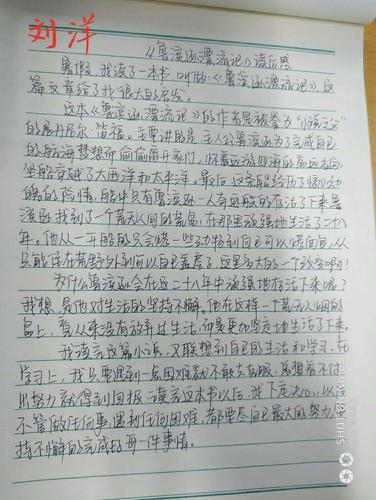 刘洋
《鲁滨逊漂流记》读后感
暑假,我读了一本书,叫做《鲁滨逊漂流记》这
篇文章给了我很大的启发。
这本《鲁滨逊漂流记》的作者是被拳为"小说之父"
的展丹尼尔·笛福。主要讲的是:主人公鲁滨逊为了完成自己
的航海梦想而偷偷离开家门,怀着远游四海的高远志向
坐船穿越了大西洋和太平洋。最后这条船经历了惊心动
魄的险情,船中只有鲁滨逊一人奇迹般的存活了下来鲁
滨逊找到了一个荒无人间的荒岛,在那里顽强地生活了二十八
年。他从一开始的只会搭一些动物到自己可以烤面包,从
只能住在荒野外到可以自己盖房子,这里多大的一个改变啊!
为什么鲁滨逊会在这二十八年中顽强地存活下来呢?
我想,是他对生活的坚持不懈。他在这样一个荒无人烟的
岛上,有从来没有放弃过生活,而是更加坚定地生活了下来。
我读完这篇小说,又联想到自己的生活和学习,在
学习上,我只要遇到一点困难就不敢去克服,总想着不付
出努力就得到回报,读完这本书以后,我下定决心,以后
不管做任何事,遇到任何困难,都要尽自己最大的努力坚
持不懈的完成好每一件事情。
SHOT ON